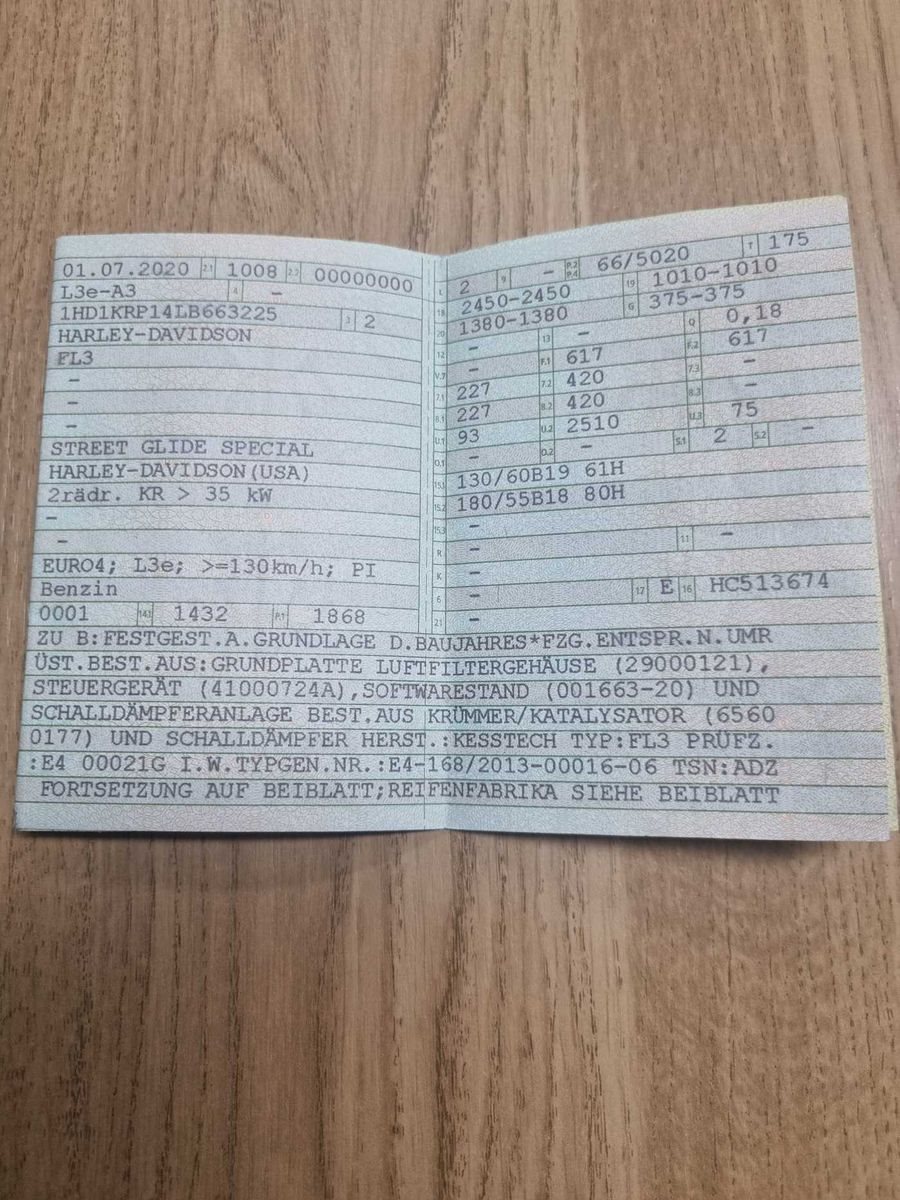 01.07.2020 2.1 1008 2.2 0000000
L3e-A3 4 –
1HD1KRP14LB663225 3 2
HARLEY-DAVIDSON
FL3
–
–
–
STREET GLIDE SPECIAL
HARLEY-DAVIDSON(USA)
2rädr. KR > 35 kW
–
–
EURO4; L3e; >=130km/h; PI
Benzin
0001 14.1 1432 P.1 1868
L 2 9 – P.2 P.4 66/5020 T 175
18 2450-2450 19 1010-1010
20 1380-1380 G 375-375
12 – 13 – Q 0,18
V.7 – F.1 617 F.2 617
7.1 227 7.2 420 7.3 –
8.1 227 8.2 420 8.3 –
U.1 93 U.2 2510 U.3 75
O.1 – O.2 – S.1 2 S.2 –
15.1 130/60B19 61H
15.2 180/55B18 80H
15.3 –
R – 11 –
K –
6 – 17 E 16 HC513674
21 –
ZU B:FESTGEST.A.GRUNDLAGE D.BAUJAHRES*FZG.ENTSPR.N.UMR
ÜST.BEST.AUS:GRUNDPLATTE LUFTFILTERGEHÄUSE (29000121),
STEUERGERÄT (41000724A),SOFTWARESTAND (001663-20) UND
SCHALLDÄMPFERANLAGE BEST.AUS KRÜMMER/KATALYSATOR (6560
0177) UND SCHALLDÄMPFER HERST.:KESSTECH TYP:FL3 PRÜFZ.
:E4 00021G I.W.TYPGEN.NR.:E4-168/2013-00016-06 TSN:ADZ
FORTSETZUNG AUF BEIBLATT;REIFENFABRIKA SIEHE BEIBLATT